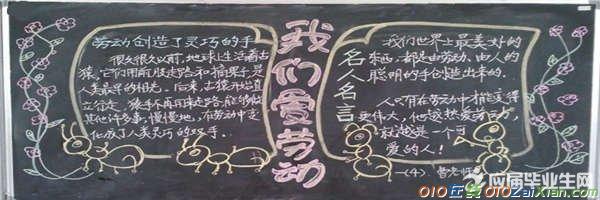 劳动创造了灵巧的手
很久很久以前,地球上生活着古
猿。它们用前肢走路和摘果子,是
人类最早的祖先。后来,古猿开始直
立行走。猿手不再用来走路,能够做
其他许多事,慢慢地,在劳动中变
化成了人类灵巧的双手。
我们爱劳动
名人名言
我们世界上最美好的
东西,都是由劳动、由人的
聪明的手创造出来的。
人只有在劳动中才能变得
更伟大,他这热爱劳动,
就越是一个可
爱的人!
一(4) 曹老师
应届毕业生网
010在线 010ZaiXian.com